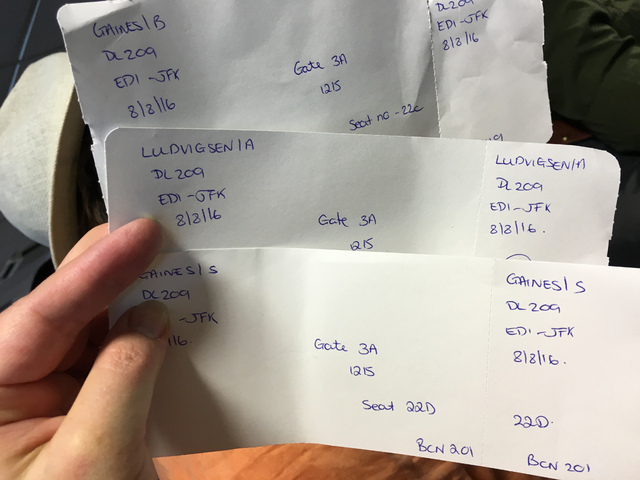 GAINES/B
DL209
EDI-JFK
8/8/16
Gate 3A
1215
Seat no-22c
DL209
EDI-JFK
8/8/16
LUDVIGSEN/A
DL209
EDI-JFK
8/8/16
Gate 3A
1215
LUDVIGSEN/A
DL209
EDI-JFK
8/8/16.
GAINES/S
DL209
-JFK
Gate 3A
1215
Seat 22D
BCN 201
GAINES/S
DL209
EDI-JFK
8/8/16.
22D.
BCN 201